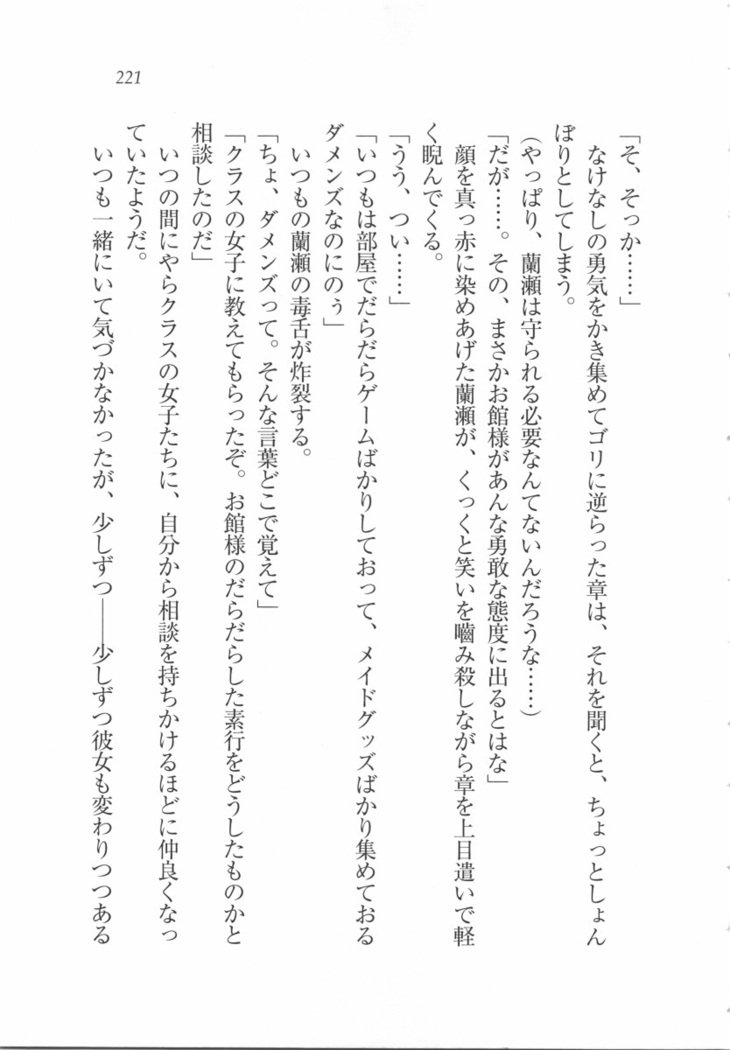 221
「そ、そっか……」
なけなしの勇気をかき集めてゴリに逆らった章は、それを聞くと、ちょっとしょん
ぼりとしてしまう。
(やっぱり、蘭瀬は守られる必要なんてないんだろうな……)
「だが……。その、まさかお館様があんな勇敢な態度に出るとはな」
顔を真っ赤に染めあげた蘭瀬が、くっくと笑いを嚙み殺しながら章を上目遣いで軽
く睨んでくる。
「うう、つい……」
「いつもは部屋でだらだらゲームばかりしておって、メイドグッズばかり集めておる
ダメンズなのにのぅ」
いつもの蘭瀬の毒舌が炸裂する。
「ちょ、ダメンズって。そんな言葉どこで覚えて」
「クラスの女子に教えてもらったぞ。お館様のだらだらした素行をどうしたものかと
相談したのだ」
いつの間にやらクラスの女子たちに、自分から相談を持ちかけるほどに仲良くなっ
ていたようだ。
いつも一緒にいて気づかなかったが、少しずつ――少しずつ彼女も変わりつつある